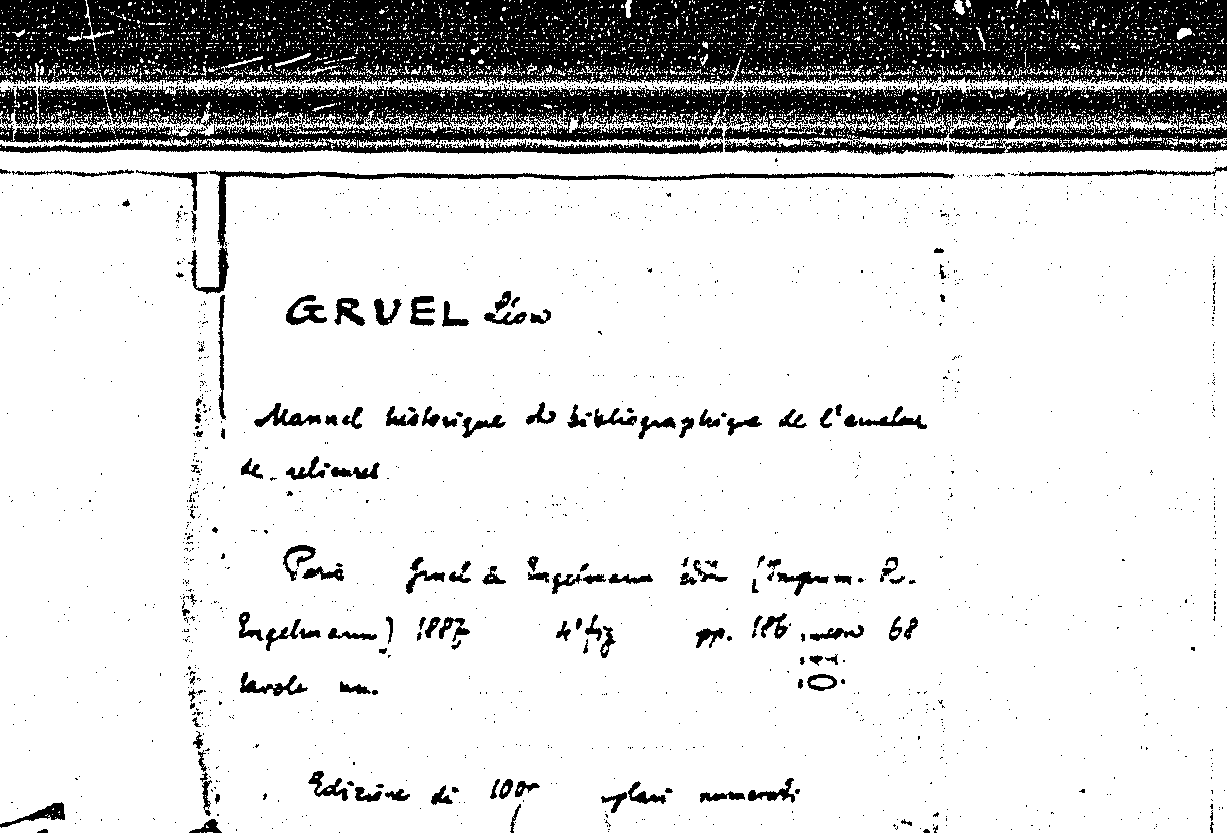 GRUEL Léon
Manuel historique et bibliographique de l'amateur
de reliures
Paris Gruel & Engelmann édit. (Imprim. R.
Engelmann) 1887 4° fig pp. 186, 68
tavole nn.
Edizione di 1000 numerati